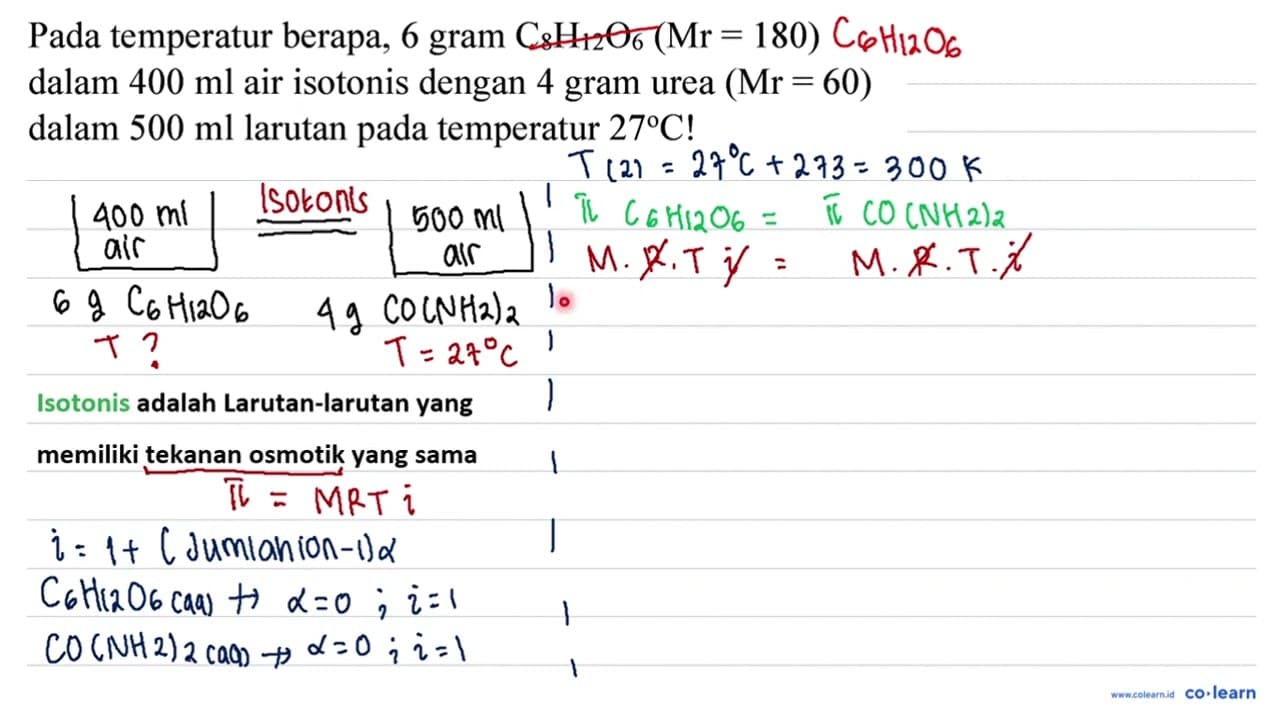 Pada temperatur berapa, 6 gram C8H12O6 (Mr = 180) C6H12O6
dalam 400 ml air isotonis dengan 4 gram urea (Mr = 60)
dalam 500 ml larutan pada temperatur 27°C!
T(2) = 27°C + 273 = 300 K
400 ml
air
Isotonis
500 ml
air
6 g C6H12O6
4 g CO(NH2)2
T ?
T = 27°C
π C6H12O6 = π CO(NH2)2
M. R. T i = M. R. T. i
Isotonis adalah Larutan-larutan yang
memiliki tekanan osmotik yang sama
π = MRT i
i = 1 + (Jumlah ion-1)α
C6H12O6 (aq) → α=0 ; i=1
CO(NH2)2 (aq) → α=0 ; i=1
www.colearn.id co·learn